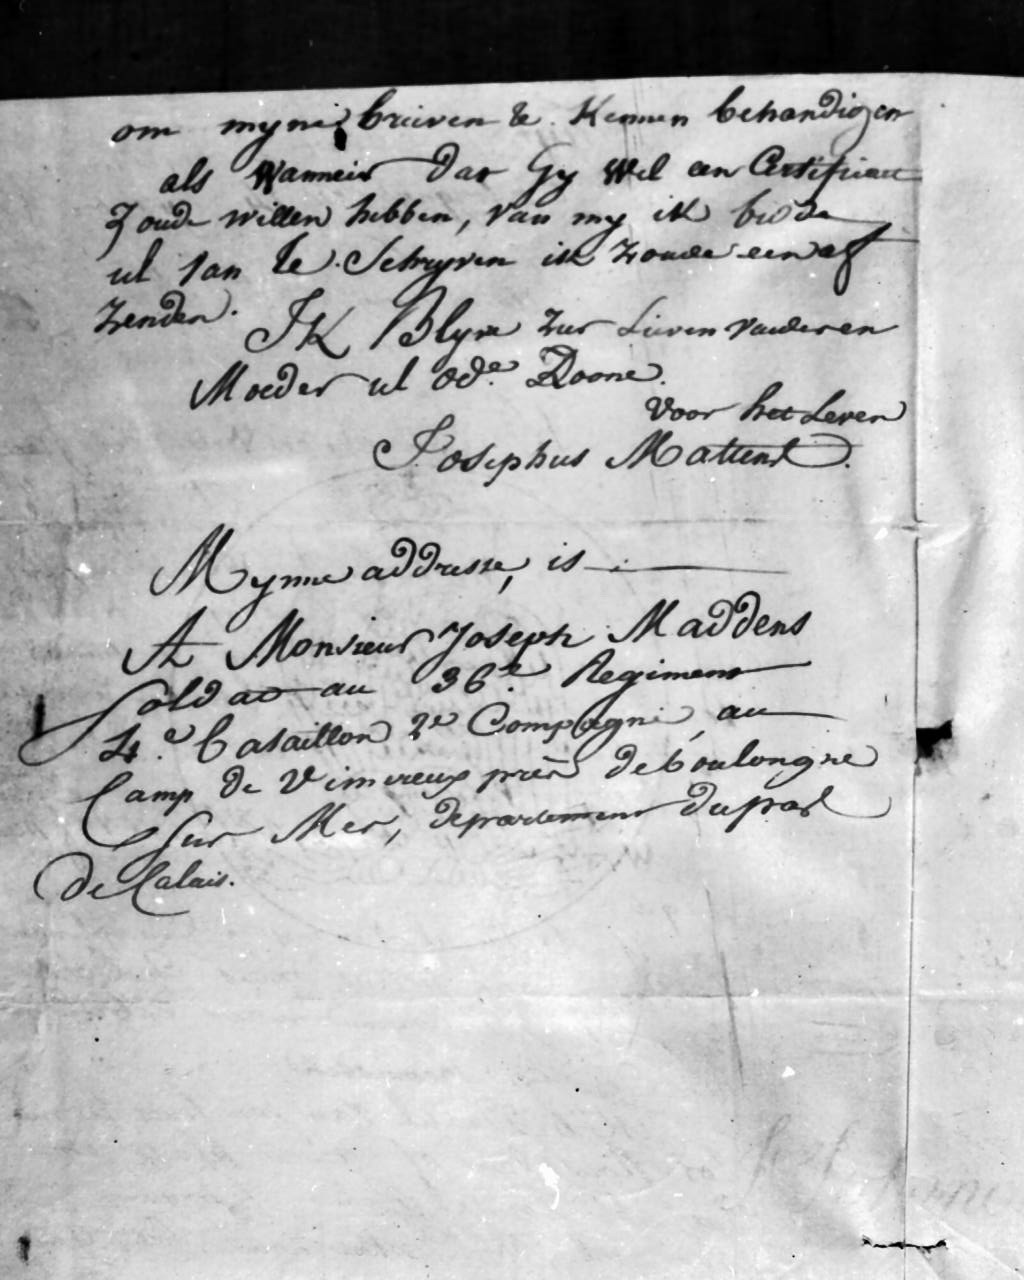 om myne brieven te kennen behandigen
als wanneir dat Gy wel een Certificat
Zoude willen hebben, van my ik bidde
ul van te Schryven ik zoude een af
zenden.
IK Blyve zeer Lieven vader en
Moeder ul ode Zoone.
Voor het Leven
Josephus Mattens.
Mynne addresse, is
A Monsieur Joseph Maddens
Soldat au 36e Regiment
4e bataillon 2e Compagnie au
Camp de Vimereux près de boulongne
Sur Mer, departement du pas
de Calais.